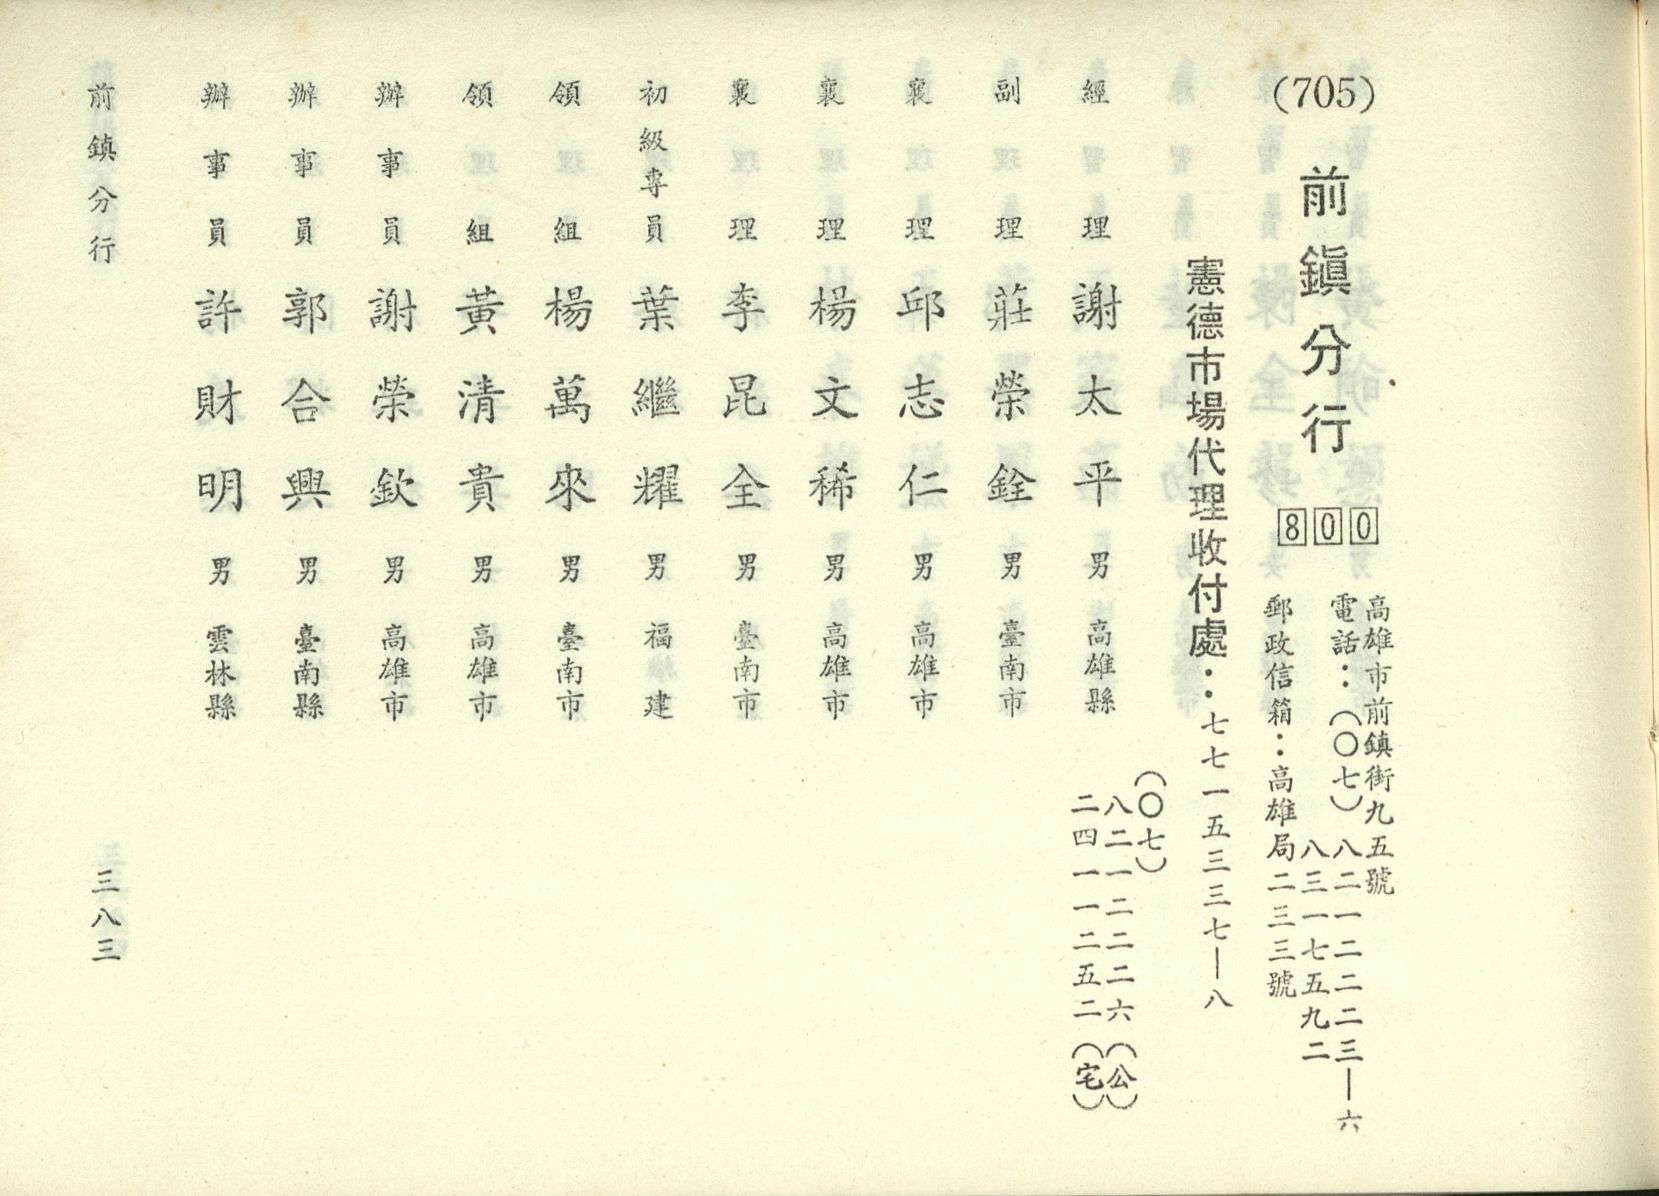 (705)
前鎭分行
800
高雄市前鎮街九五號
電話：(〇七)八二一二二二三—六
八三一七五九二
郵政信箱：高雄局二三三號
憲德市場代理收付處：七七一五三三七—八
經理 謝太平 男 高雄縣
(〇七)
八二一二二二六(公)
二四一一二五二(宅)
副理 莊榮銓 男 臺南市
襄理 邱志仁 男 高雄市
襄理 楊文稀 男 高雄市
襄理 李昆全 男 臺南市
初級專員 葉繼耀 男 福建
領組 楊萬來 男 臺南市
領組 黃清貴 男 高雄市
辦事員 謝榮欽 男 高雄市
辦事員 郭合興 男 臺南縣
辦事員 許財明 男 雲林縣
前鎮分行
三八三